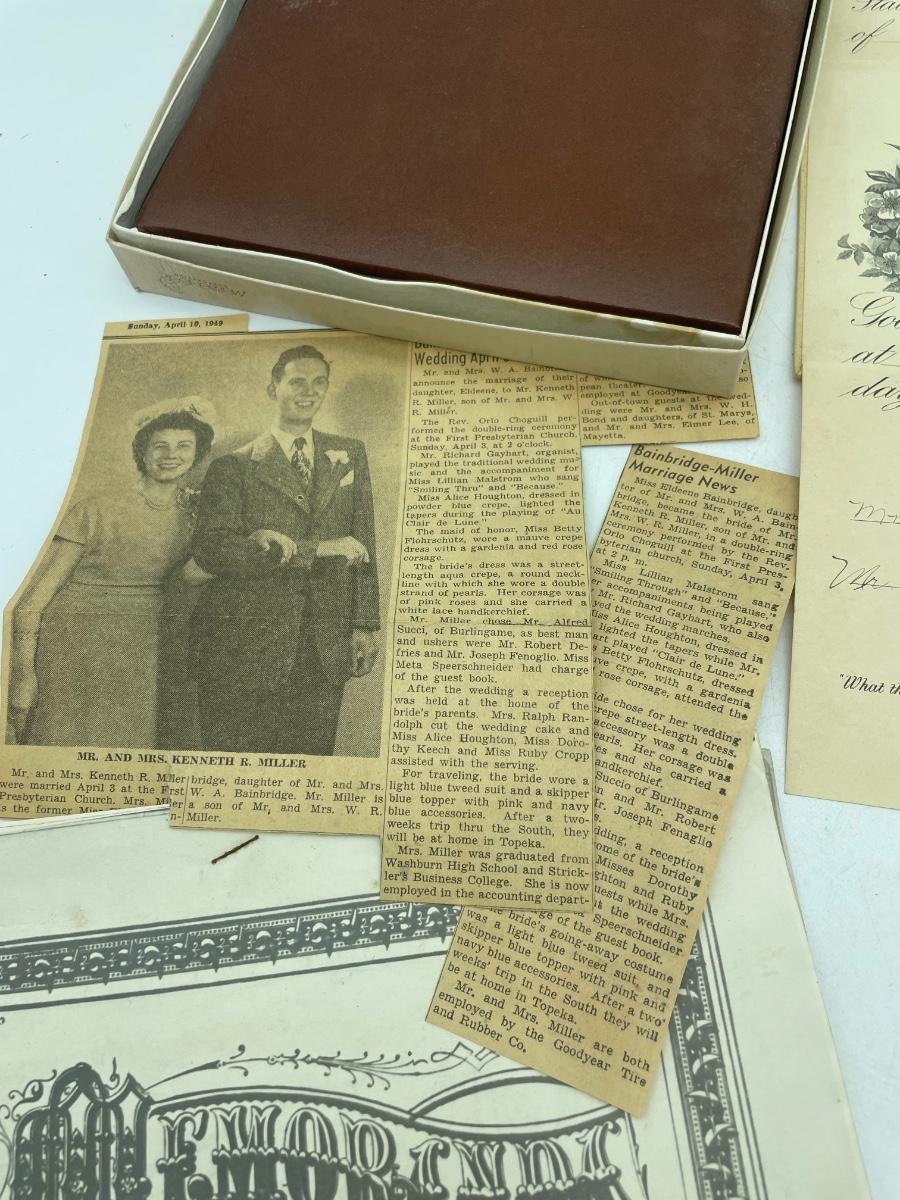 Sunday, April 10, 1949
MR. AND MRS. KENNETH R. MILLER
Mr. and Mrs. Kenneth R. Miller
were married April 3 at the First
Presbyterian Church. Mrs.
is the former Miss
bridge, daughter of Mr. and Mrs.
W. A. Bainbridge. Mr. Miller is
a son of Mr. and Mrs. W. R.
Miller.
Wedding April
Mr. and Mrs. W. A.
announce the marriage of their
daughter, Eldeene, to Mr. Kenneth
R. Miller, son of Mr. and Mrs. W.
R. Miller.
The Rev. Orlo Choguill per-
formed the double-ring ceremony
at the First Presbyterian Church,
Sunday, April 3, at 2 o'clock.
Mr. Richard Gayhart, organist,
played the traditional wedding mu-
sic and the accompaniment for
Miss Lillian Malstrom who sang
"Smiling Thru" and "Because."
Miss Alice Houghton, dressed in
powder blue crepe, lighted the
tapers during the playing of "Au
Clair de Lune."
The maid of honor, Miss Betty
Flohrschutz, wore a mauve crepe
dress with a gardenia and red rose
corsage.
The bride's dress was a street-
length aqua crepe, a round neck-
line with which she wore a double
strand of pearls. Her corsage was
of pink roses and she carried a
white lace handkerchief.
Mr. Miller chose Mr. Alfred
Succi, of Burlingame, as best man
and ushers were Mr. Robert De-
fries and Mr. Joseph Fenoglio. Miss
Meta Speerschneider had charge
of the guest book.
After the wedding a reception
was held at the home of the
bride's parents. Mrs. Ralph Ran-
dolph cut the wedding cake and
Miss Alice Houghton, Miss Doro-
thy Keech and Miss Ruby Cropp
assisted with the serving.
For traveling, the bride wore a
light blue tweed suit and a skipper
blue topper with pink and navy
blue accessories. After a two-
weeks trip thru the South, they
will be at home in Topeka.
Mrs. Miller was graduated from
Washburn High School and Strick-
ler's Business College. She is now
employed in the accounting depart-
pean theater
employed at
Out-of-town guests at the wed-
ding were Mr. and Mrs. W. H.
Bond and daughters, of St. Marys,
and Mr. and Mrs. Elmer Lee, of
Mayetta.
Bainbridge-Miller
Marriage News
Miss Eldeene Bainbridge, daugh-
ter of Mr. and Mrs. W. A. Bain-
bridge, became the bride of Mr.
Kenneth R. Miller, son of Mr. and
Mrs. W. R. Miller, in a double-ring
ceremony performed by the Rev.
Orlo Choguill at the First Pres-
byterian church, Sunday, April 3,
at 2 p. m.
Miss Lillian Malstrom sang
"Smiling Through" and "Because,"
accompaniments being played
Mr. Richard Gayhart, who also
the wedding marches.
Alice Houghton, dressed in
lighted the tapers while Mr.
played "Clair de Lune."
Betty Flohrschutz, dressed
crepe, with a gardenia
rose corsage, attended the
chose for her wedding
crepe street-length dress.
accessory was a double
Her corsage was
and she carried a
Succi of Burlingame
and Mr. Robert
Joseph Fenaglio
a reception
home of the bride's
Misses Dorothy
and Ruby
guests while Mrs.
the wedding
Speerschneider
of the guest book.
bride's going-away costume
was a light blue tweed suit, and
skipper blue topper with pink and
navy blue accessories. After a two
weeks' trip in the South they will
be at home in Topeka.
Mr. and Mrs. Miller are both
employed by the Goodyear Tire
and Rubber Co.
of
at
day
Mr
"What
MEMORANDA